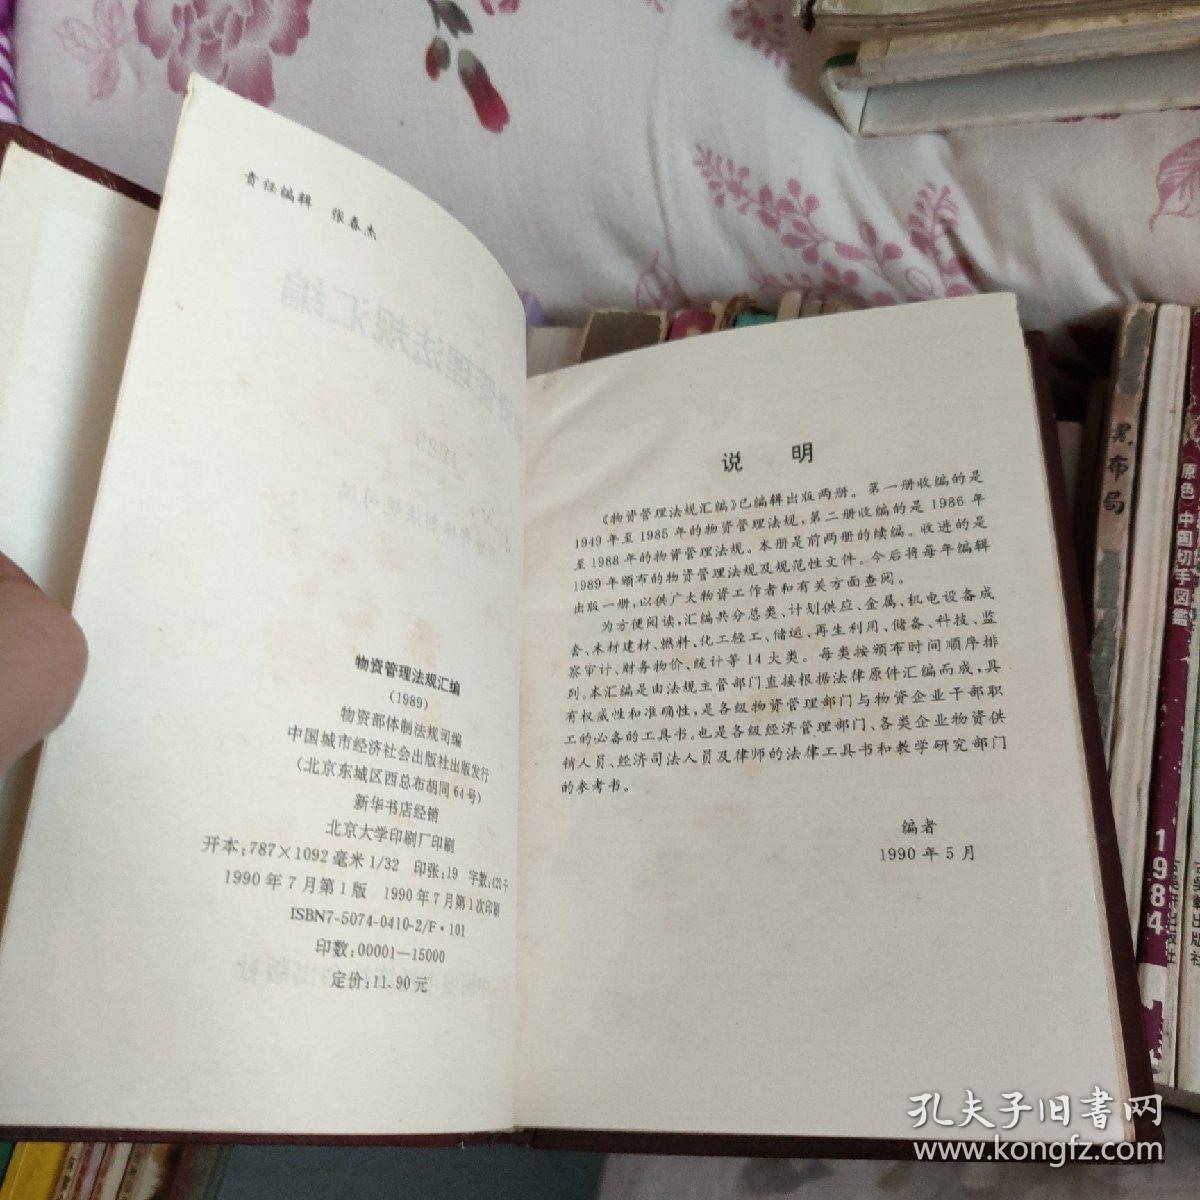 责任编辑　张春杰
物资管理法规汇编
(1989)
物资部体制法规司编
中国城市经济社会出版社出版发行
(北京东城区西总布胡同64号)
新华书店经销
北京大学印刷厂印刷
开本:787×1092毫米1/32　印张:19　字数:420千
1990年7月第1版　1990年7月第1次印刷
ISBN7-5074-0410-2/F·101
印数:00001—15000
定价:11.90元
说　明
《物资管理法规汇编》已编辑出版两册。第一册收编的是
1949年至1985年的物资管理法规,第二册收编的是1986年
至1988年的物资管理法规。本册是前两册的续编。收进的是
1989年颁布的物资管理法规及规范性文件。今后将每年编辑
出版一册,以供广大物资工作者和有关方面查阅。
为方便阅读,汇编共分总类、计划供应、金属、机电设备成
套、木材建材、燃料、化工轻工、储运、再生利用、储备、科技、监
察审计、财务物价、统计等14大类。每类按颁布时间顺序排
列。本汇编是由法规主管部门直接根据法律原件汇编而成,具
有权威性和准确性,是各级物资管理部门与物资企业干部职
工的必备的工具书。也是各级经济管理部门、各类企业物资供
销人员、经济司法人员及律师的法律工具书和教学研究部门
的参考书。
编者
1990年5月
黑布局
《原色》中国切手図鑑
1984
孔夫子旧书网
www.kongfz.com